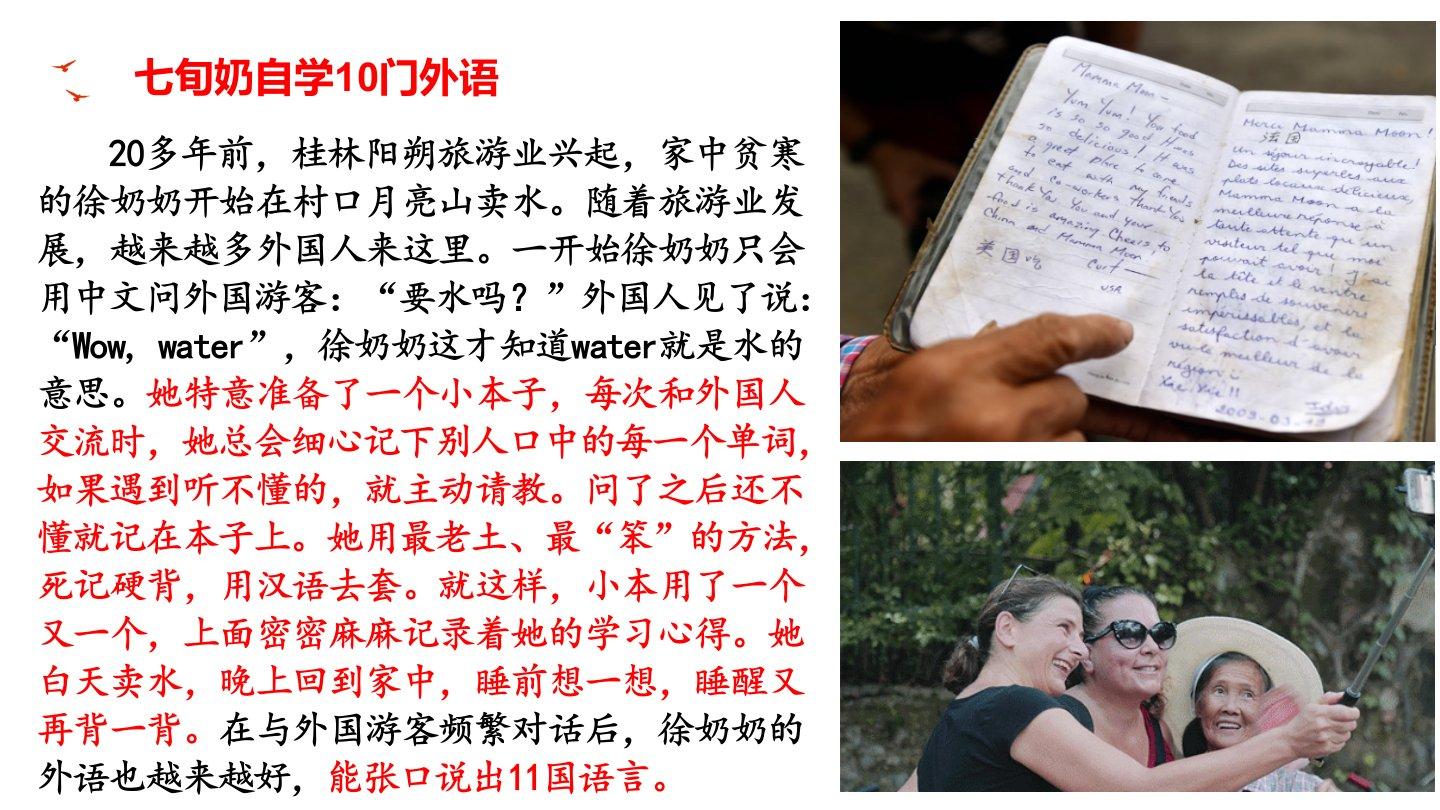 七旬奶自学10门外语
20多年前，桂林阳朔旅游业兴起，家中贫寒
的徐奶奶开始在村口月亮山卖水。随着旅游业发
展，越来越多外国人来这里。一开始徐奶奶只会
用中文问外国游客：“要水吗？”外国人见了说：
“Wow, water”，徐奶奶这才知道water就是水的
意思。她特意准备了一个小本子，每次和外国人
交流时，她总会细心记下别人口中的每一个单词，
如果遇到听不懂的，就主动请教。问了之后还不
懂就记在本子上。她用最老土、最“笨”的方法，
死记硬背，用汉语去套。就这样，小本用了一个
又一个，上面密密麻麻记录着她的学习心得。她
白天卖水，晚上回到家中，睡前想一想，睡醒又
再背一背。在与外国游客频繁对话后，徐奶奶的
外语也越来越好，能张口说出11国语言。
Mamma Moon –
Yum Yum! Your food
is so so good it was
so delicious! It was
a great place to come
to eat with my friends
and co-workers thank you
thank you. You and your
food is amazing Cheers to
China and Mamma Moon
美国
Curt
USA
Merci Mamma Moon!
法国
un séjour incroyable!
Des sites superbes aux
plats locaux délicieux,
Mamma Moon a la
meilleure réponse à
toute attente qu'un
visiteur tel que moi
pouvait avoir! J'ai
la tête et le ventre
remplis de souvenirs
impérissables, et la
satisfaction d'avoir
vu le meilleur de la
région
Xie Xie !!